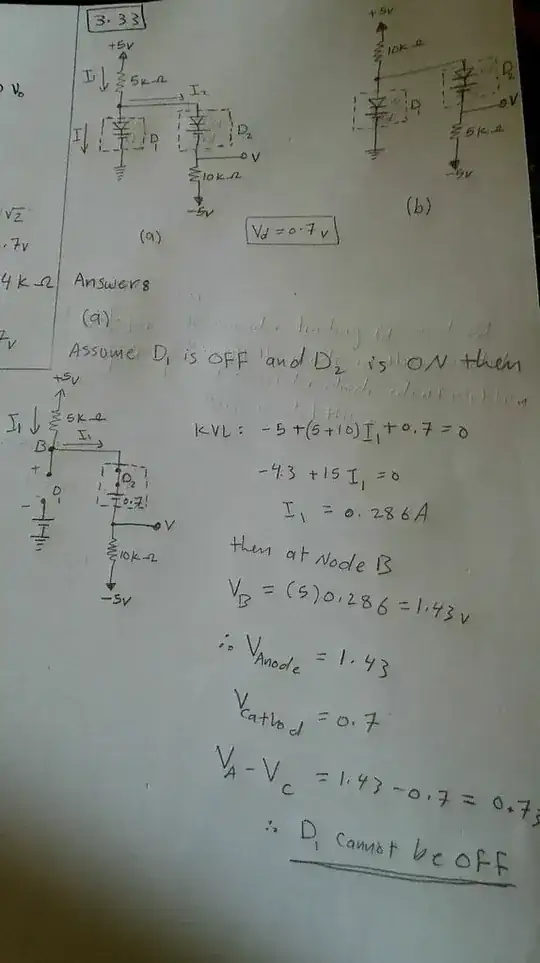 3.33
V₀
+5v
I₁ ↓ 5kΩ
I₂
I ↓
D₁
D₂
V
10kΩ
-5v
(a)
+5v
10kΩ
D₁
D₂
V
5kΩ
-5v
(b)
Vd = 0.7v
√2
.7v
4kΩ
Answers
(a)
Assume D₁ is OFF and D₂ is ON then
+5v
I₁ ↓ 5kΩ
B I₁
+
-
D₁
D₂
0.7
V
10kΩ
-5v
KVL: -5 + (5+10)I₁ + 0.7 = 0
-4.3 + 15 I₁ = 0
I₁ = 0.286A
then at Node B
V_B = (5) 0.286 = 1.43v
∴ V_Anode = 1.43
V_Cathod = 0.7
V_A - V_C = 1.43 - 0.7 = 0.73
∴ D₁ cannot be OFF